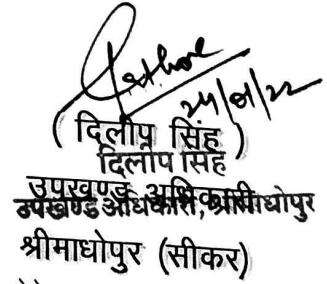 24/01/22
( दिलीप सिंह )
दिलीप सिंह
उपखण्ड अधिकारी
उपखण्ड अधिकारी, श्रीमाधोपुर
श्रीमाधोपुर (सीकर)